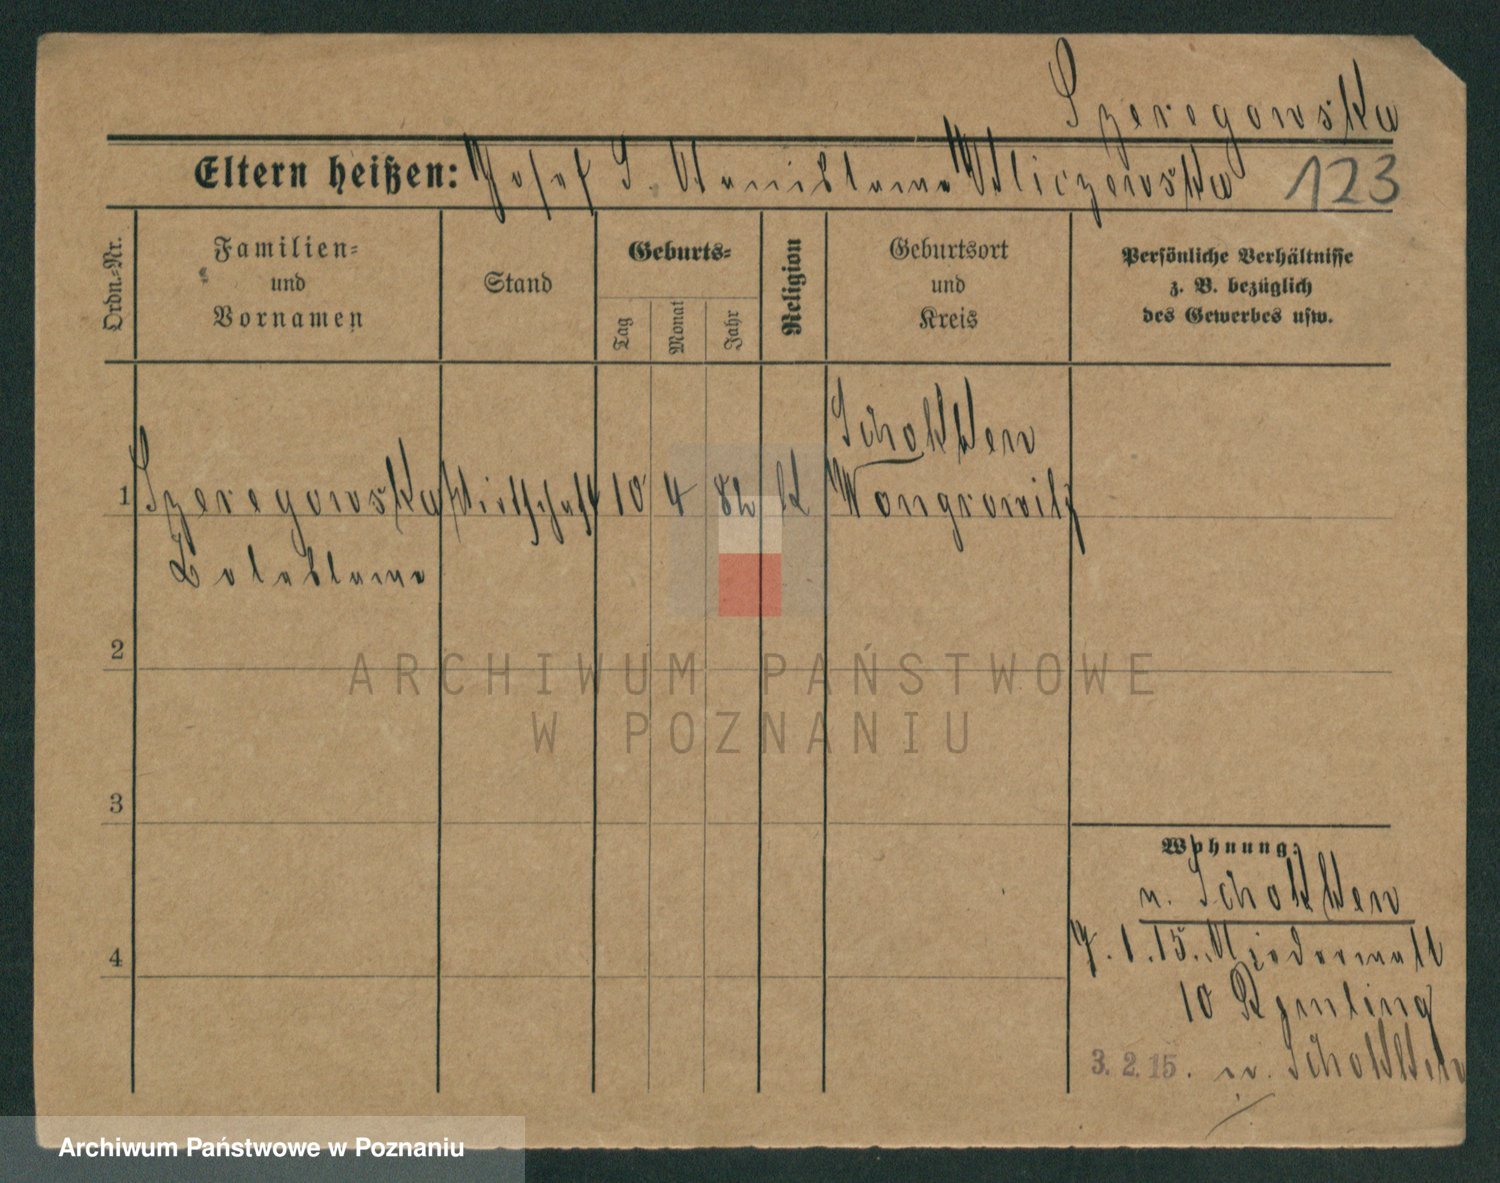 Szeregowska
Eltern heißen: Josef S. Stanislawa Wliczewska 123
Ordn.-Nr.
Familien-
und
Vornamen
Stand
Geburts-
Tag
Monat
Jahr
Religion
Geburtsort
und
Kreis
Persönliche Verhältnisse
z. B. bezüglich
des Gewerbes usw.
Schokken
1 Szeregowska 10 4 82 K Wongrowitz
2
3
4
Wohnung:
n. Schokken
7. 1. 15.
10
3. 2. 15. n. Schokken
ARCHIWUM PAŃSTWOWE
W POZNANIU
Archiwum Państwowe w Poznaniu